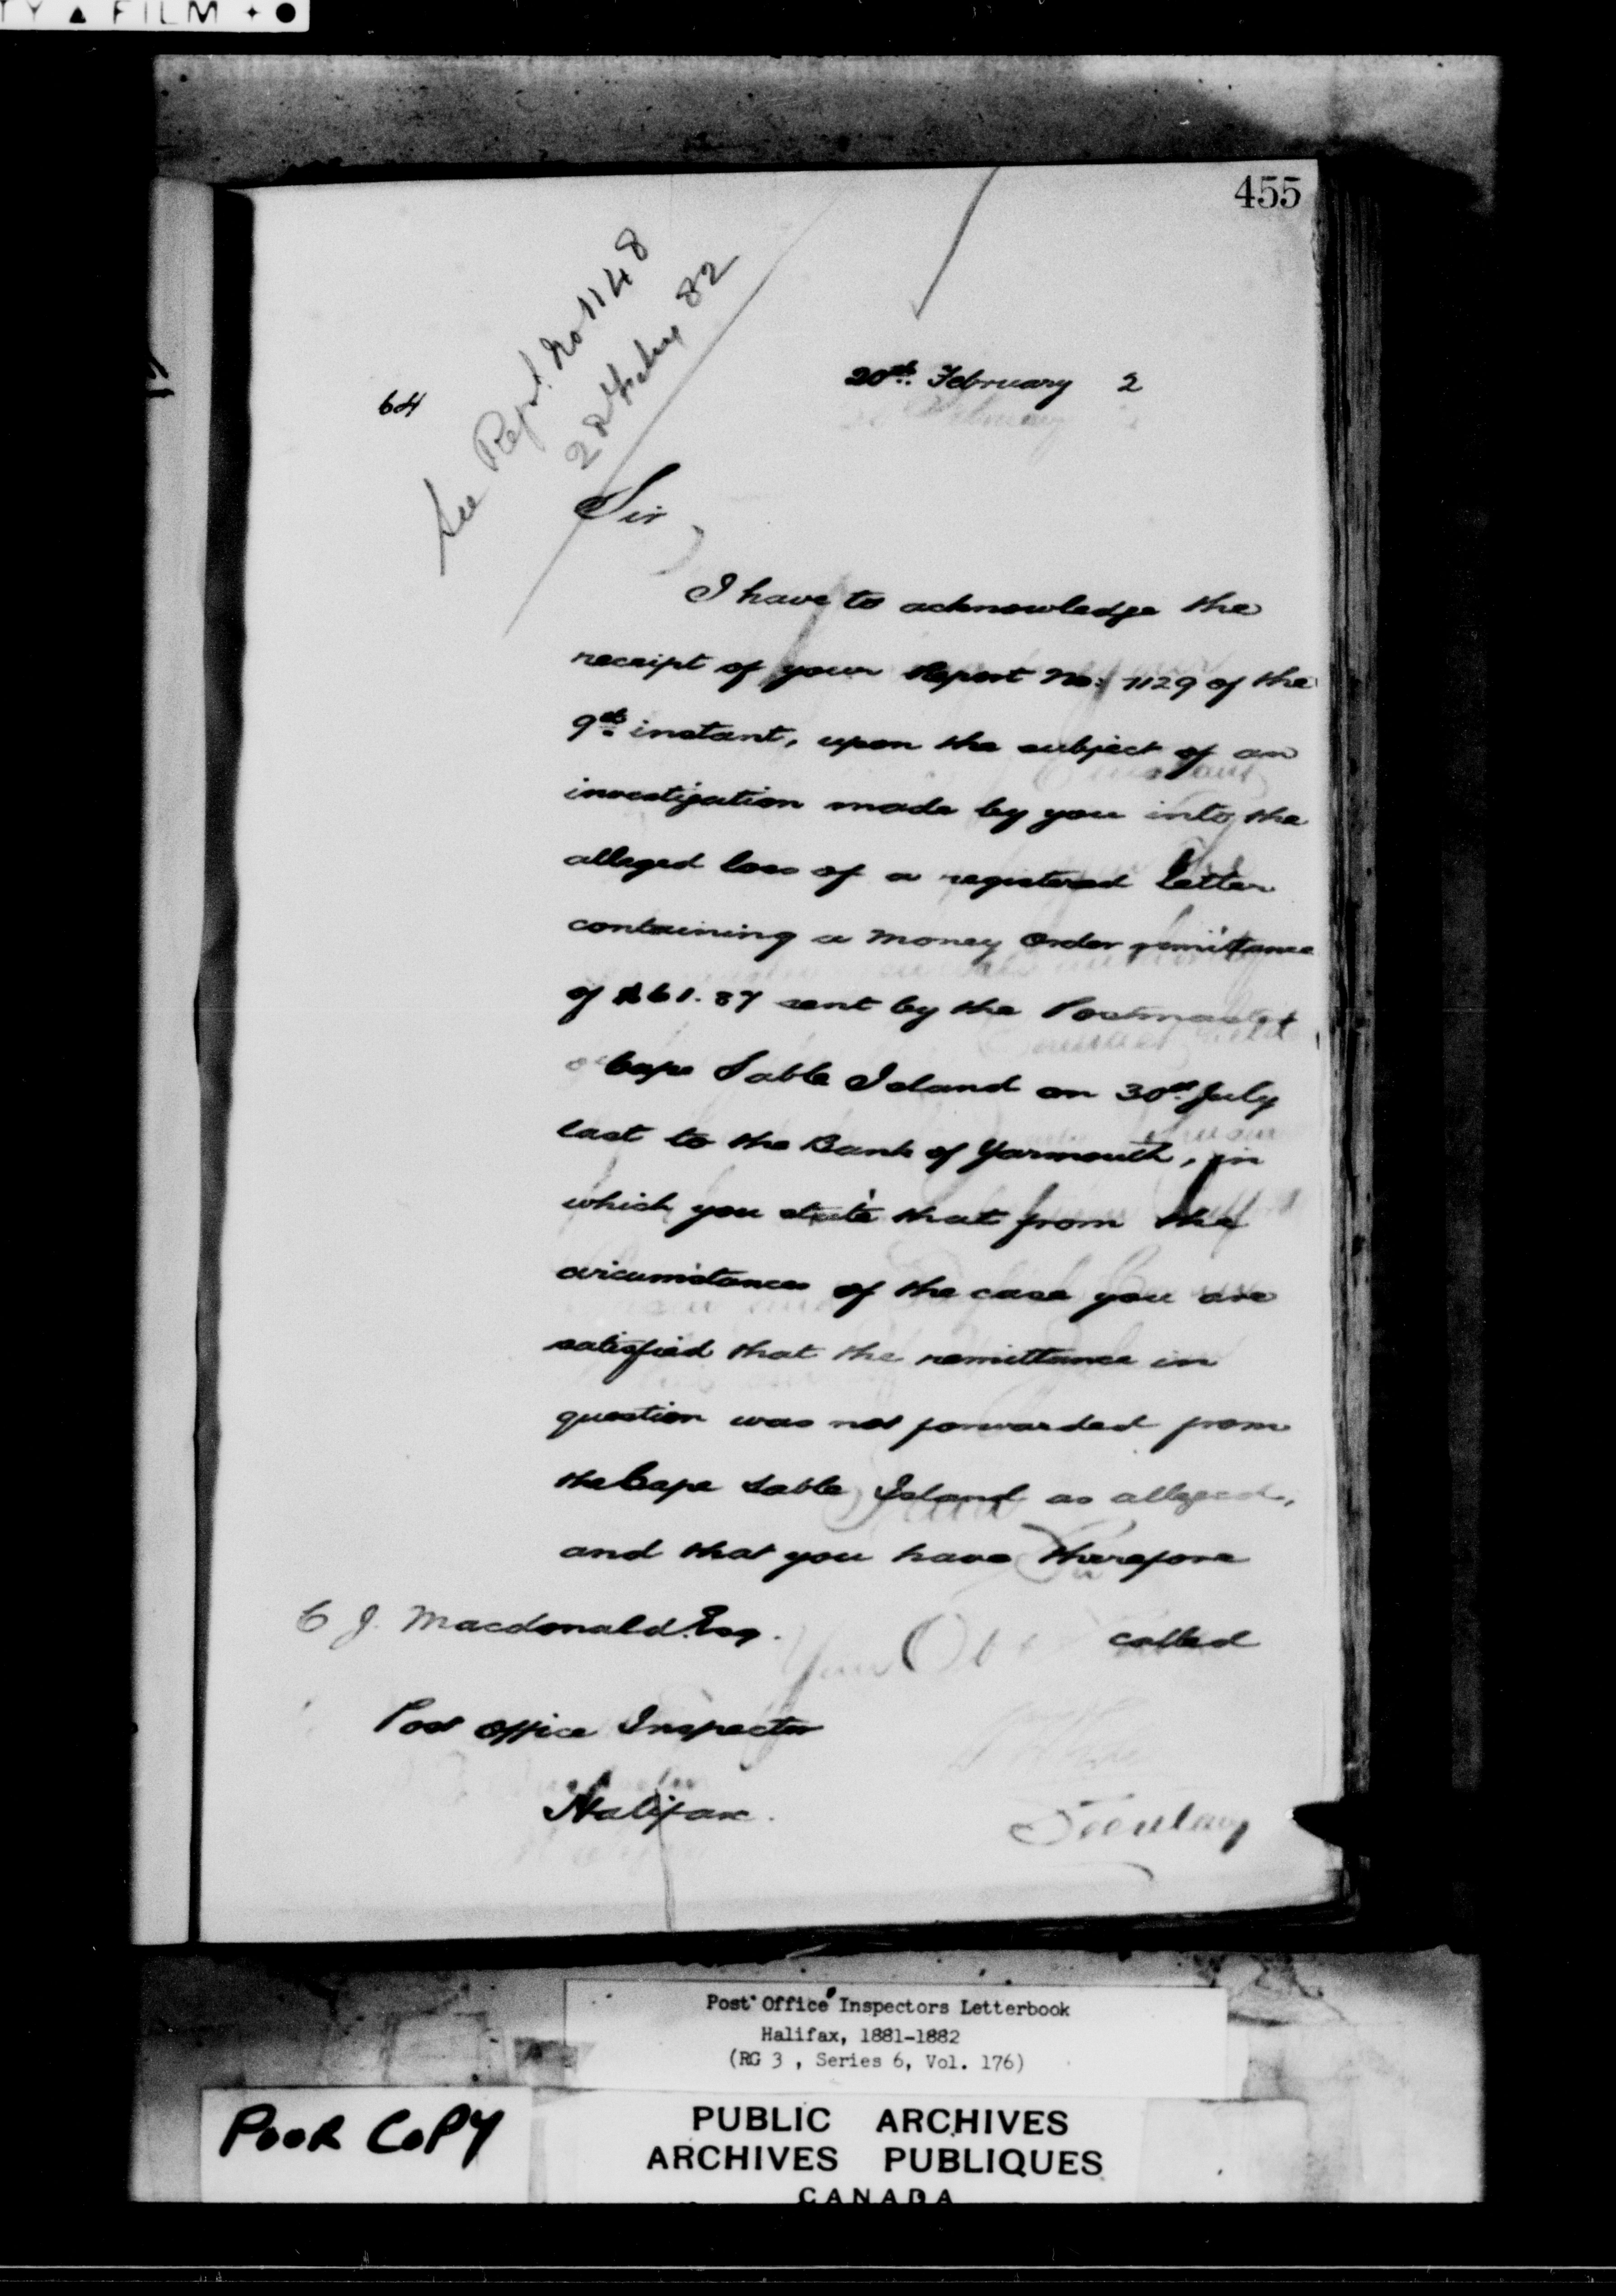 TY ▲ FILM
455
See Rept. No 1148
28 Feby 82
64
20th. February 2
Sir,
I have to acknowledge the
receipt of your Report No: 1129 of the
9th. instant, upon the subject of an
investigation made by you into the
alleged loss of a registered letter
containing a Money Order remittance
of $61.87 sent by the Postmaster
of Cape Sable Island on 30th July
last to the Bank of Yarmouth, in
which you state that from the
circumstances of the case you are
satisfied that the remittance in
question was not forwarded from
the Cape Sable Island as alleged,
and that you have therefore
called
C J. Macdonald Esq.
Post Office Inspector
Halifax.
Secretary
Post Office Inspectors Letterbook
Halifax, 1881-1882
(RG 3 , Series 6, Vol. 176)
POOR COPY
PUBLIC ARCHIVES
ARCHIVES PUBLIQUES
CANADA